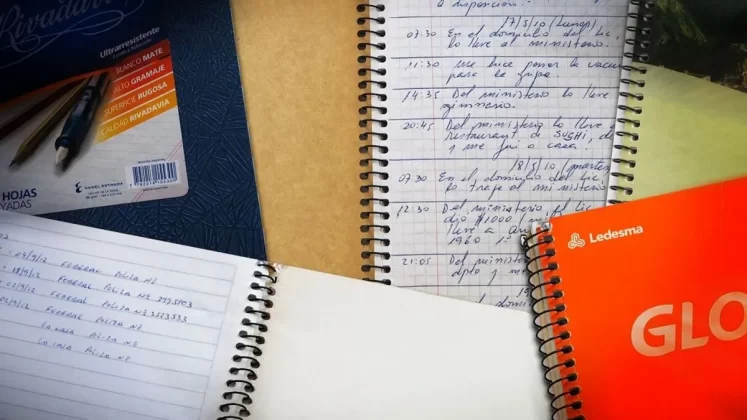 Rivadavia
Ultrarresistente
BLANCO MATE
ALTO GRAMAJE
SUPERFICIE RUGOSA
CALIDAD RIVADAVIA
HOJAS
YADAS
a disposición.
17/5/10 (Lunes)
07:30 En el domicilio del Lic,
lo lleve al ministerio.
11:30 me hice poner la vacuna
para la gripe.
14:35 Del ministerio lo lleve
gimnasio.
20:45 Del ministerio lo lleve
restaurant de SUSHI, de
y me fui a casa.
18/5/10 (martes
07:30 En el domicilio del Lic,
lo traje al ministerio
12:30 Del ministerio, el Lic
dio $1000
lleve a
1960
21:05 Del minist
dpto y me
domic
Ledesma
GLO
04/9/12 FEDERAL POLIZA Nº
18/9/12 FEDERAL POLIZA Nº
FEDERAL POLIZA Nº
LA CAJA POLIZA Nº
LA CAJA POLIZA Nº